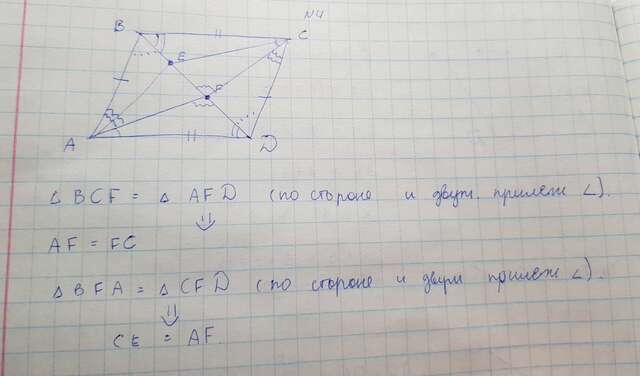 N4
B
C
E
F
A
D
△ BCF = △ AFD (по стороне и двум. прилеж ∠).
⇓
AF = FC
△ BFA = △ CFD (по стороне и двум прилеж ∠).
⇓
CE = AF.